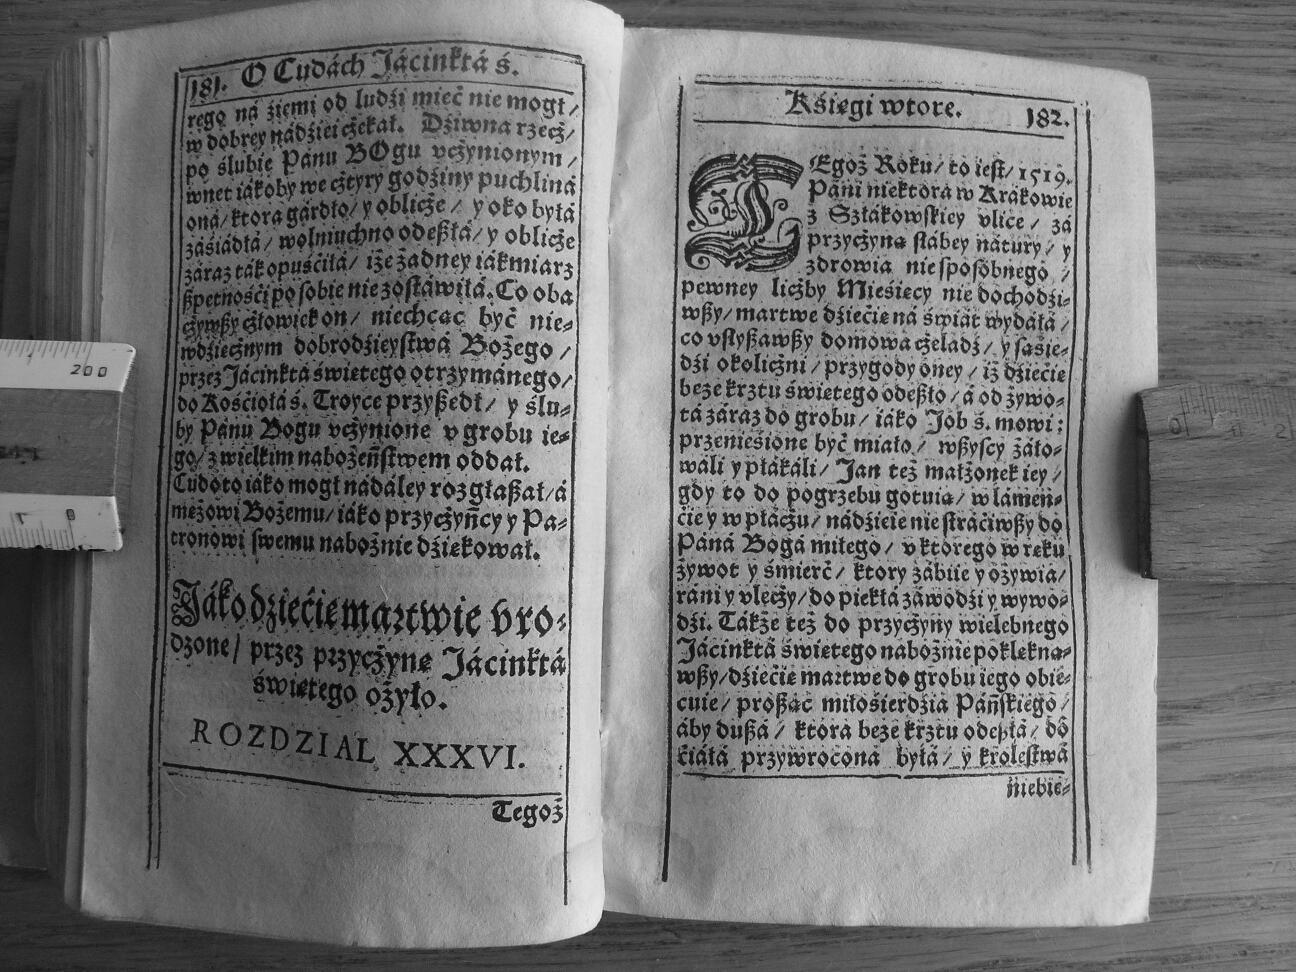 181. O Cudách Jácinktá ś.
rego ná źiemi od ludźi mieć nie mogł /
w dobrey nádźiei cżekał. Dźiwna rzecż /
po ślubie Pánu BOgu vcżynionym /
wnet iákoby we cżtyry godźiny puchliná
oná / ktora gárdło / y oblicże / y oko byłá
záśiádłá / wolniuchno odeßłá / y oblicże
záraz ták opuśćiłá / iże żadney iákmiarz
ßpetnośći po sobie nie zostáwiłá. Co oba
cżywßy cżłowiek on / niechcąc być nie⸗
wdźięcżnym dobrodźieystwá Bożego /
przez Jácinktá świętego otrzymánego /
do Kośćiołá ś. Troyce przyßedł / y ślu⸗
by Pánu Bogu vcżynione v grobu ie⸗
go / z wielkim nabożeństwem oddał.
Cudo to iáko mogł nadáley rozgłaßał / á
mężowi Bożemu / iáko przycżyńcy y Pa⸗
tronowi swemu nabożnie dźiękował.
Jáko dźiećię martwie vro⸗
dzone / przez przycżynę Jácinktá
świętego ożyło.
ROZDZIAL XXXVI.
Tegoż
Kśięgi wtore. 182.
TEgoż Roku / to iest / 1519.
Páni niektora w Krákowie
z Szłákowskiey vlice / zá
przycżyną słábey nátury / y
zdrowia niesposobnego /
pewney licżby Mieśięcy nie dochodźi⸗
wßy / martwe dźiećię ná świát wydáłá /
co vsłyßawßy domowa cżeladź / y sąśie⸗
dźi okolicżni / przygody oney / iż dźiećię
beze krztu świętego odeßło / á od żywo⸗
tá záraz do grobu / iáko Job ś. mowi :
przenieśione być miáło / wßyscy żáło⸗
wáli y płákáli / Jan też małżonek iey /
gdy to do pogrzebu gotuią / w lámen⸗
ćie y w płácżu / nádźieie nie stráćiwßy do
Páná Bogá miłego / v ktorego w ręku
żywot y śmierć / ktory zábiie y ożywia /
ráni y vlecży / do piekłá záwodźi y wywo⸗
dźi. Tákże też do przycżyny wielebnego
Jácinktá świętego nabożnie poklękną⸗
wßy / dźiećię martwe do grobu iego obie⸗
cuie / proßąc miłośierdźia Páńskiego /
áby dußá / ktora beze krztu odeßłá / do
ćiáłá przywrocona byłá / y krolestwá
niebie⸗